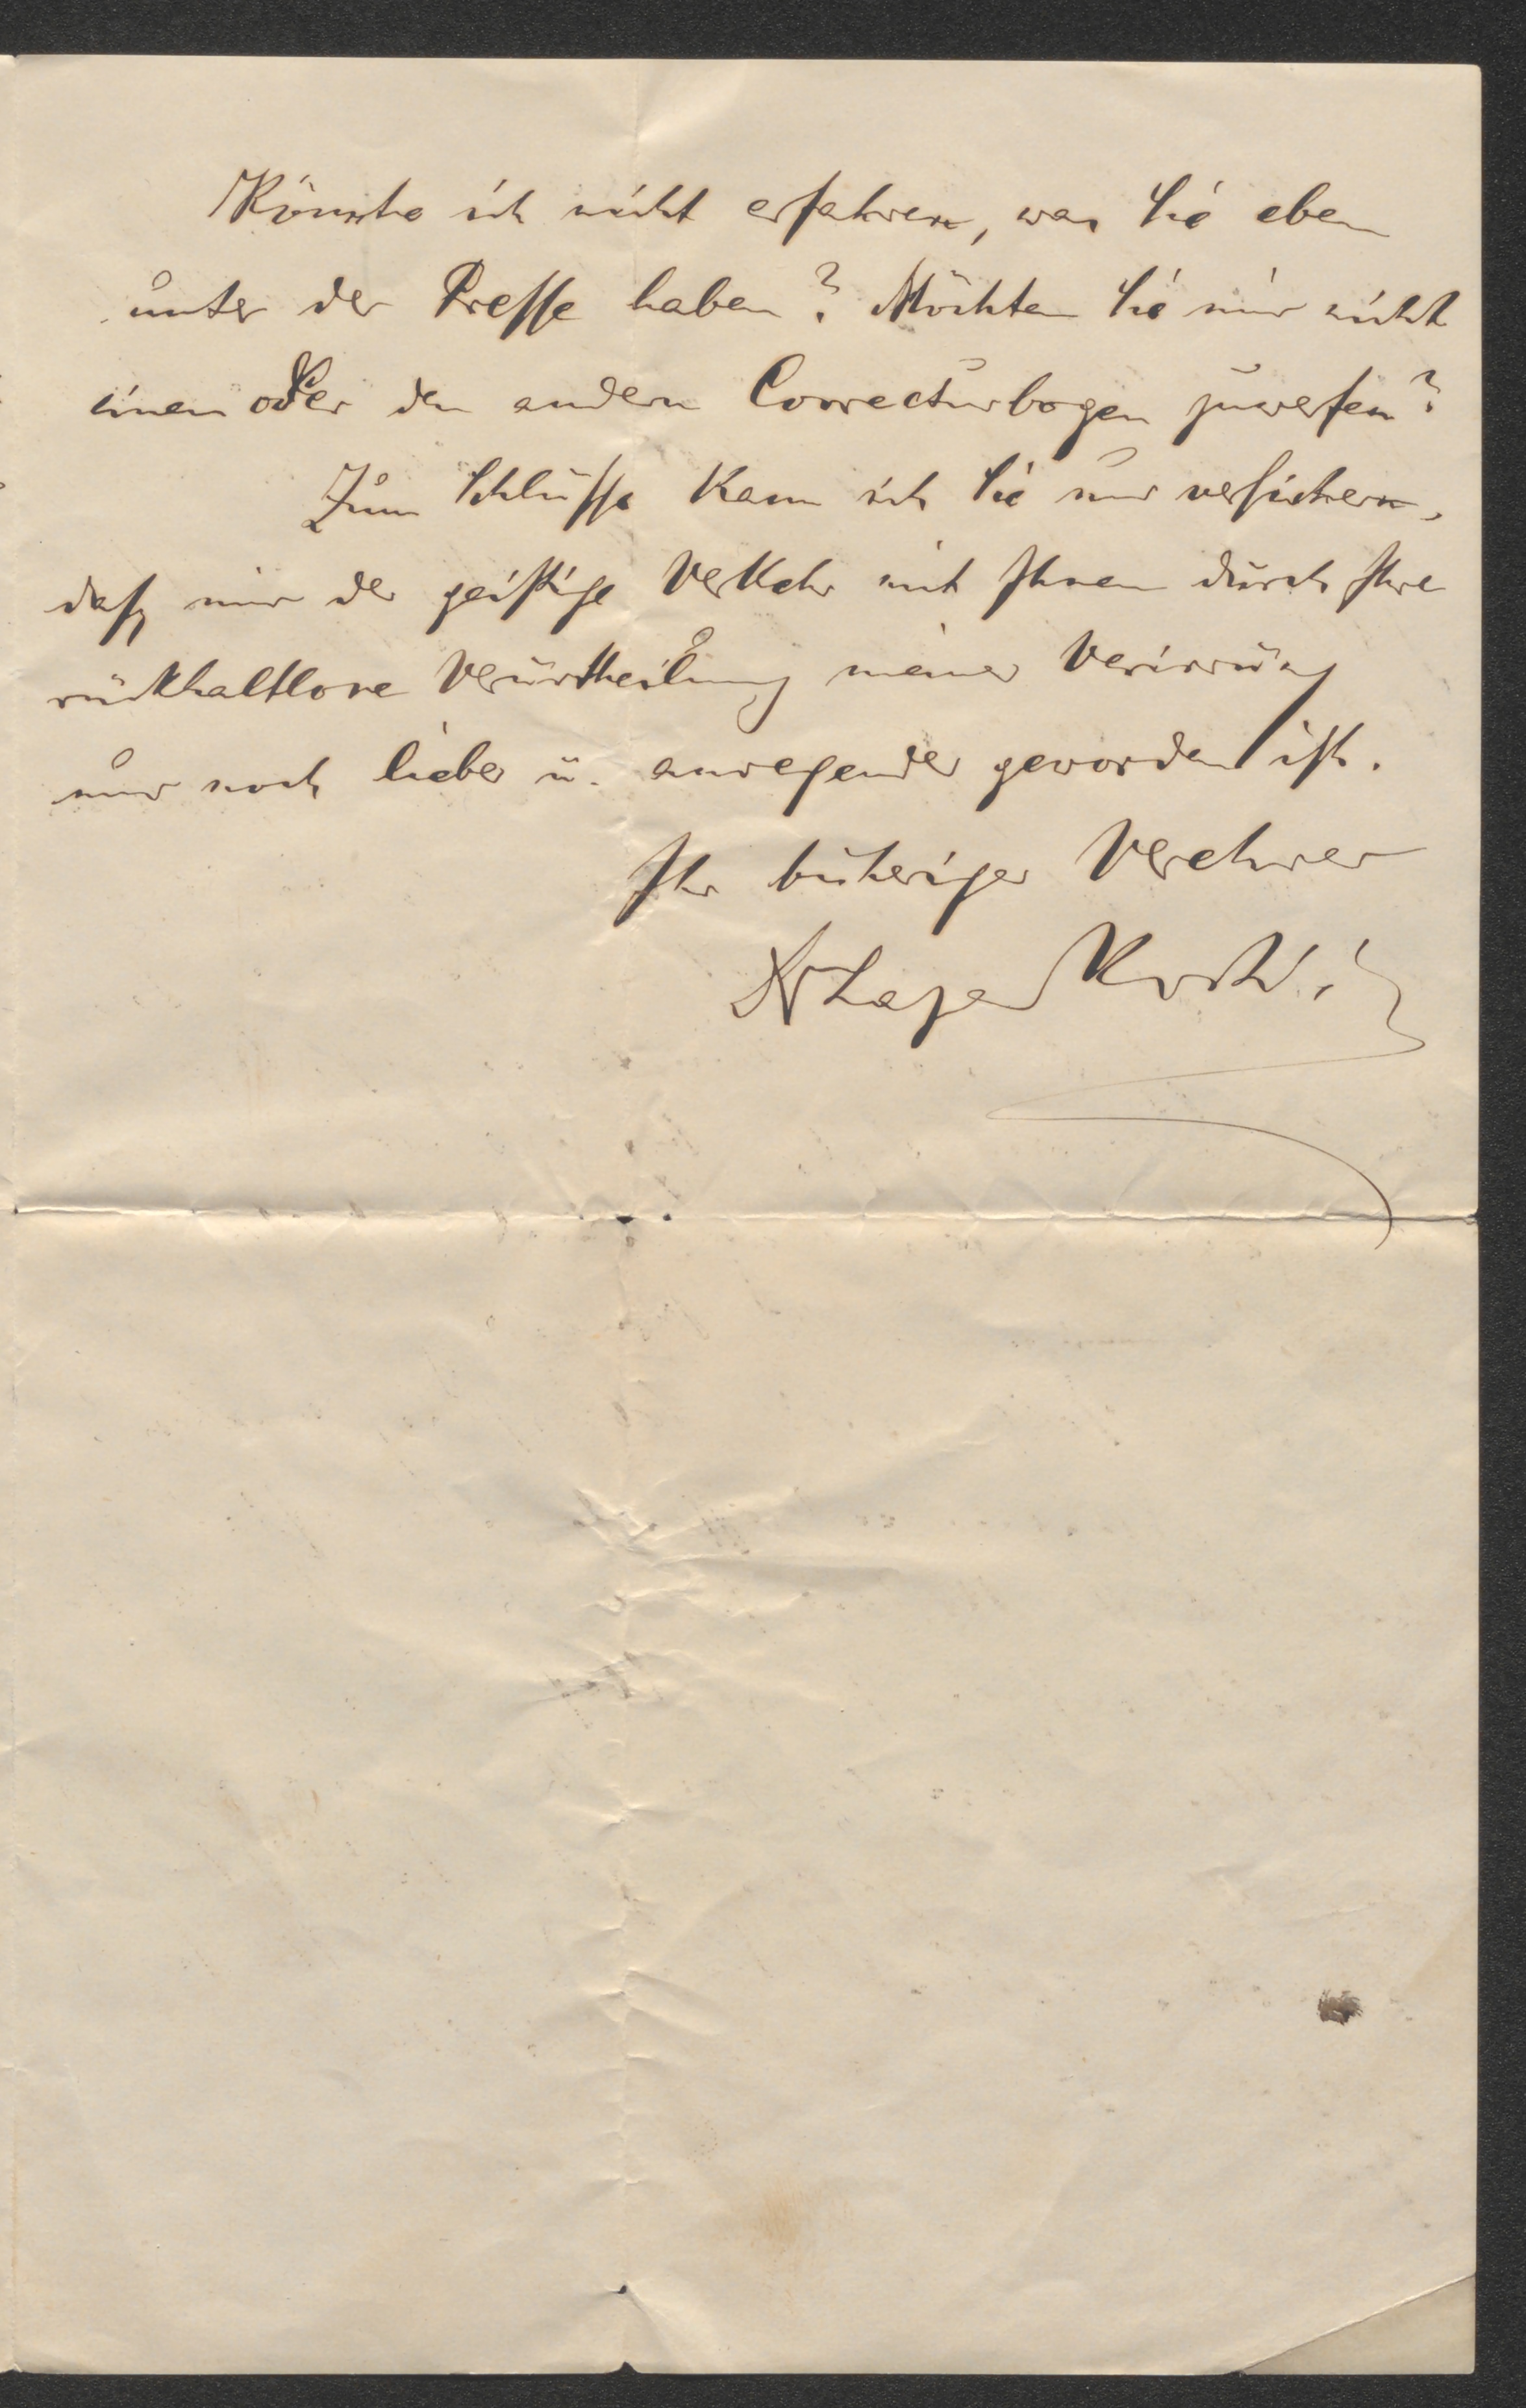 Könnte ich nicht erfahren, was Sie eben
unter der Presse haben? Möchten Sie mir nicht
einen oder den andern Correcturbogen zuwerfen?
Zum Schlusse kann ich Sie nur versichern,
daß mir der geistige Verkehr mit Ihnen durch Ihre
rückhaltlose Verurtheilung meiner Verirrung
nur noch lieber u. anregender geworden ist.
Ihr bisheriger Verehrer
Dr Laza